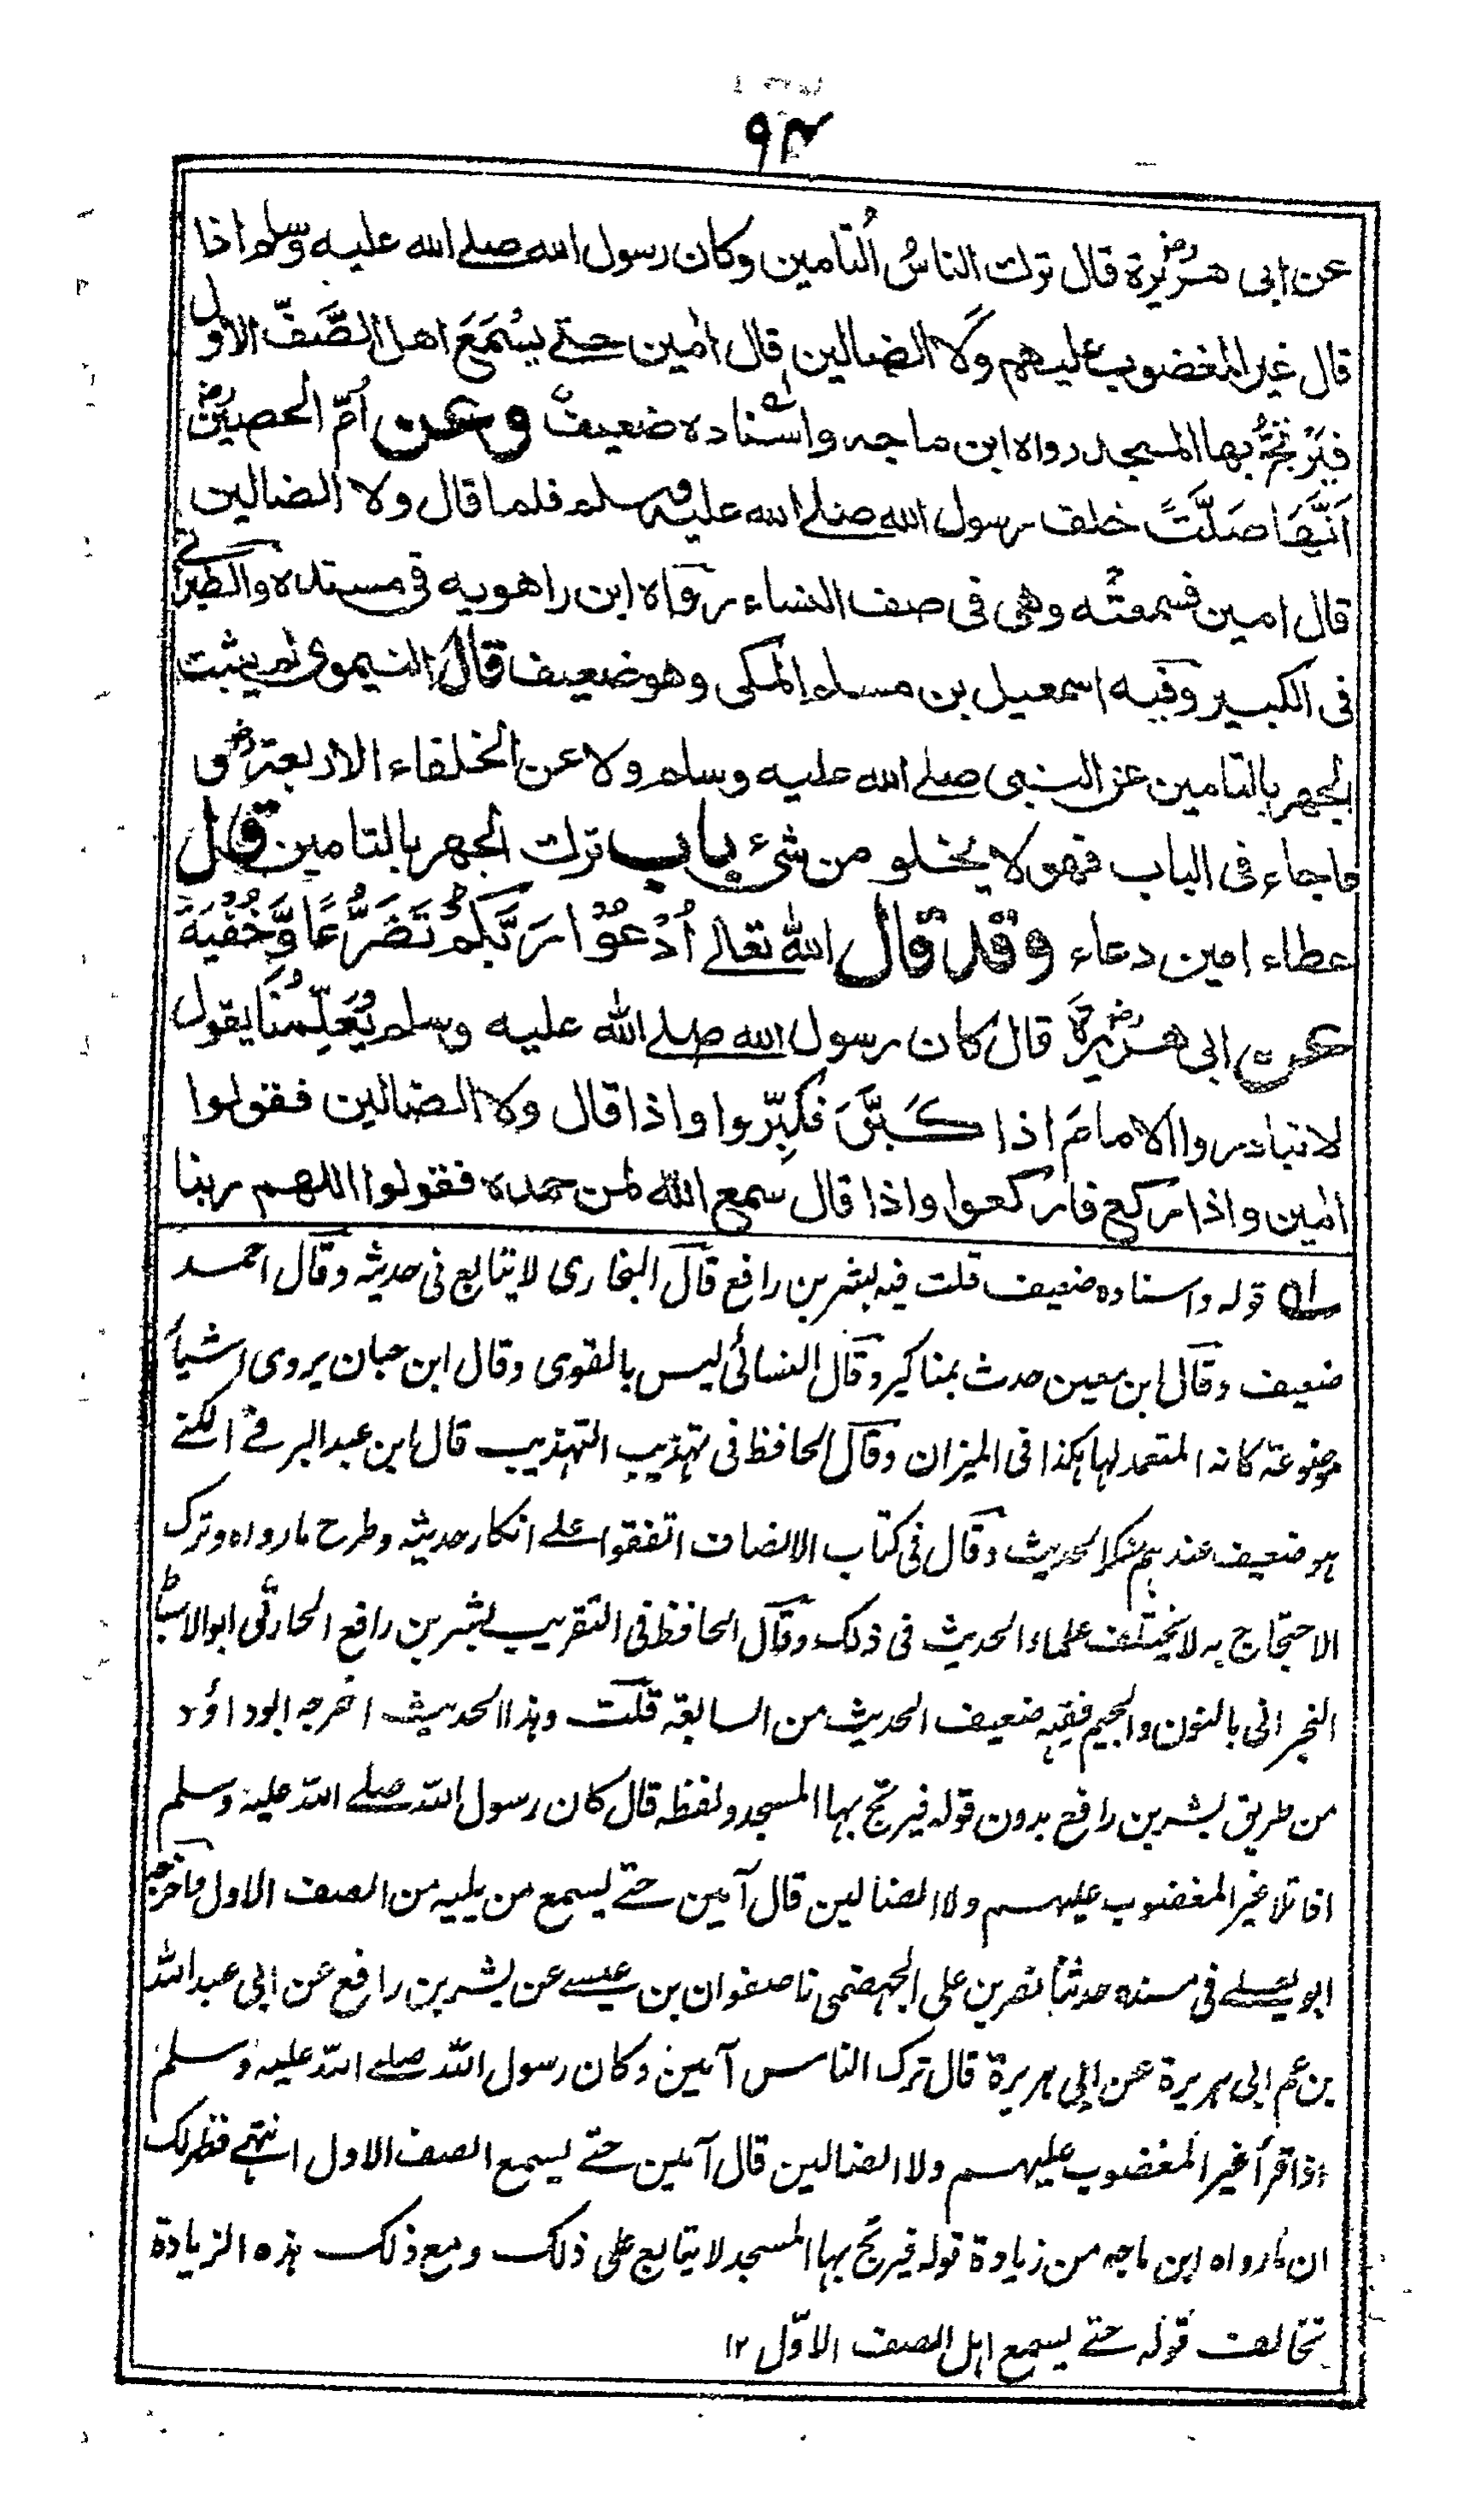 ٩٤
عن ابى هريرة رض قال ترك الناسُ التامين وكان رسول الله صلے الله عليه وسلم اذا
قال غير المغضوب عليهم ولا الضالين قال اٰمين حتے يسْمَعَ اهل الصَّفّ الاول
فيَرْتَجُّ بها المسجد رواه ابن ماجه واسناده ضعيفٌ وعن اُمّ الحصين رض
اَنَّهَا صَلَّتْ خلف رسول الله صلے الله عليه وسلم فلما قال ولا الضالين
قال امين فسمعتْه وهى فى صف النساء رواه ابن راهويه فى مسنده والطبرانے
فى الكبير وفيه اسمعيل بن مسلم المكى وهو ضعيف قال النيموى لم يثبت
الجهر بالتامين عن النبى صلے الله عليه وسلم ولا عن الخلفاء الاربعة رض و
ماجاء فى الباب فهو لا يخلو من شئ باب ترك الجهر بالتامين قال
عطاء امين دعاء وقد قال الله تعالے اُدْعُوْا رَبَّكُمْ تَضَرُّعًا وَّخُفْيَةً
عن ابى هريرة رض قال كان رسول الله صلے الله عليه وسلم يُعَلِّمُنَا يقول
لا تبادروا الامامَ اذا كَبَّرَ فكبِّروا واذا قال ولا الضالين فقولوا
اٰمين واذا ركع فاركعوا واذا قال سمع الله لمن حمده فقولوا اللهم ربنا
لـه قوله واسناده ضعيف قلت فيه بشر بن رافع قال البخارى لا يتابع فى حديثه وقال احمد
ضعيف وقال ابن معين حدث بمناكير وقال النسائى ليس بالقوى وقال ابن حبان يروى اشياء
موضوعة كانه المتعمد لها هكذا فى الميزان وقال الحافظ فى تهذيب التهذيب قال ابن عبد البر فے الكنے
هو ضعيف عندهم منكر الحديث وقال فى كتاب الانصاف اتفقوا علے انكار حديثه وطرح مارواه وترك
الاحتجاج به لا يختلف علماء الحديث فى ذلك وقال الحافظ فى التقريب بشر بن رافع الحارثى ابو الاسباط
النجرانى بالنون والجيم فقيه ضعيف الحديث من السابعة قلت وهذا الحديث اخرجه ابو داؤد
من طريق بشر بن رافع بدون قوله فيرتج بها المسجد ولفظه قال كان رسول الله صلے الله عليه وسلم
اذا تلا غير المغضوب عليهم ولا الضالين قال آمين حتے يسمع من يليه من الصف الاول واخرجه
ابو يعلے فى مسنده حدثنا نصر بن على الجهضمى نا صفوان بن عيسے عن بشر بن رافع عن ابى عبد الله
بن عم ابى هريرة عن ابى هريرة قال ترك الناس آمين وكان رسول الله صلے الله عليه وسلم
اذا قرأ غير المغضوب عليهم ولا الضالين قال آمين حتے يسمع الصف الاول انتهے فظهر لك
ان مارواه ابن ماجه من زيادة قوله فيرتج بها المسجد لا يتابع على ذلك ومع ذلك هذه الزيادة
تخالف قوله حتے يسمع اهل الصف الاوّل ١٢